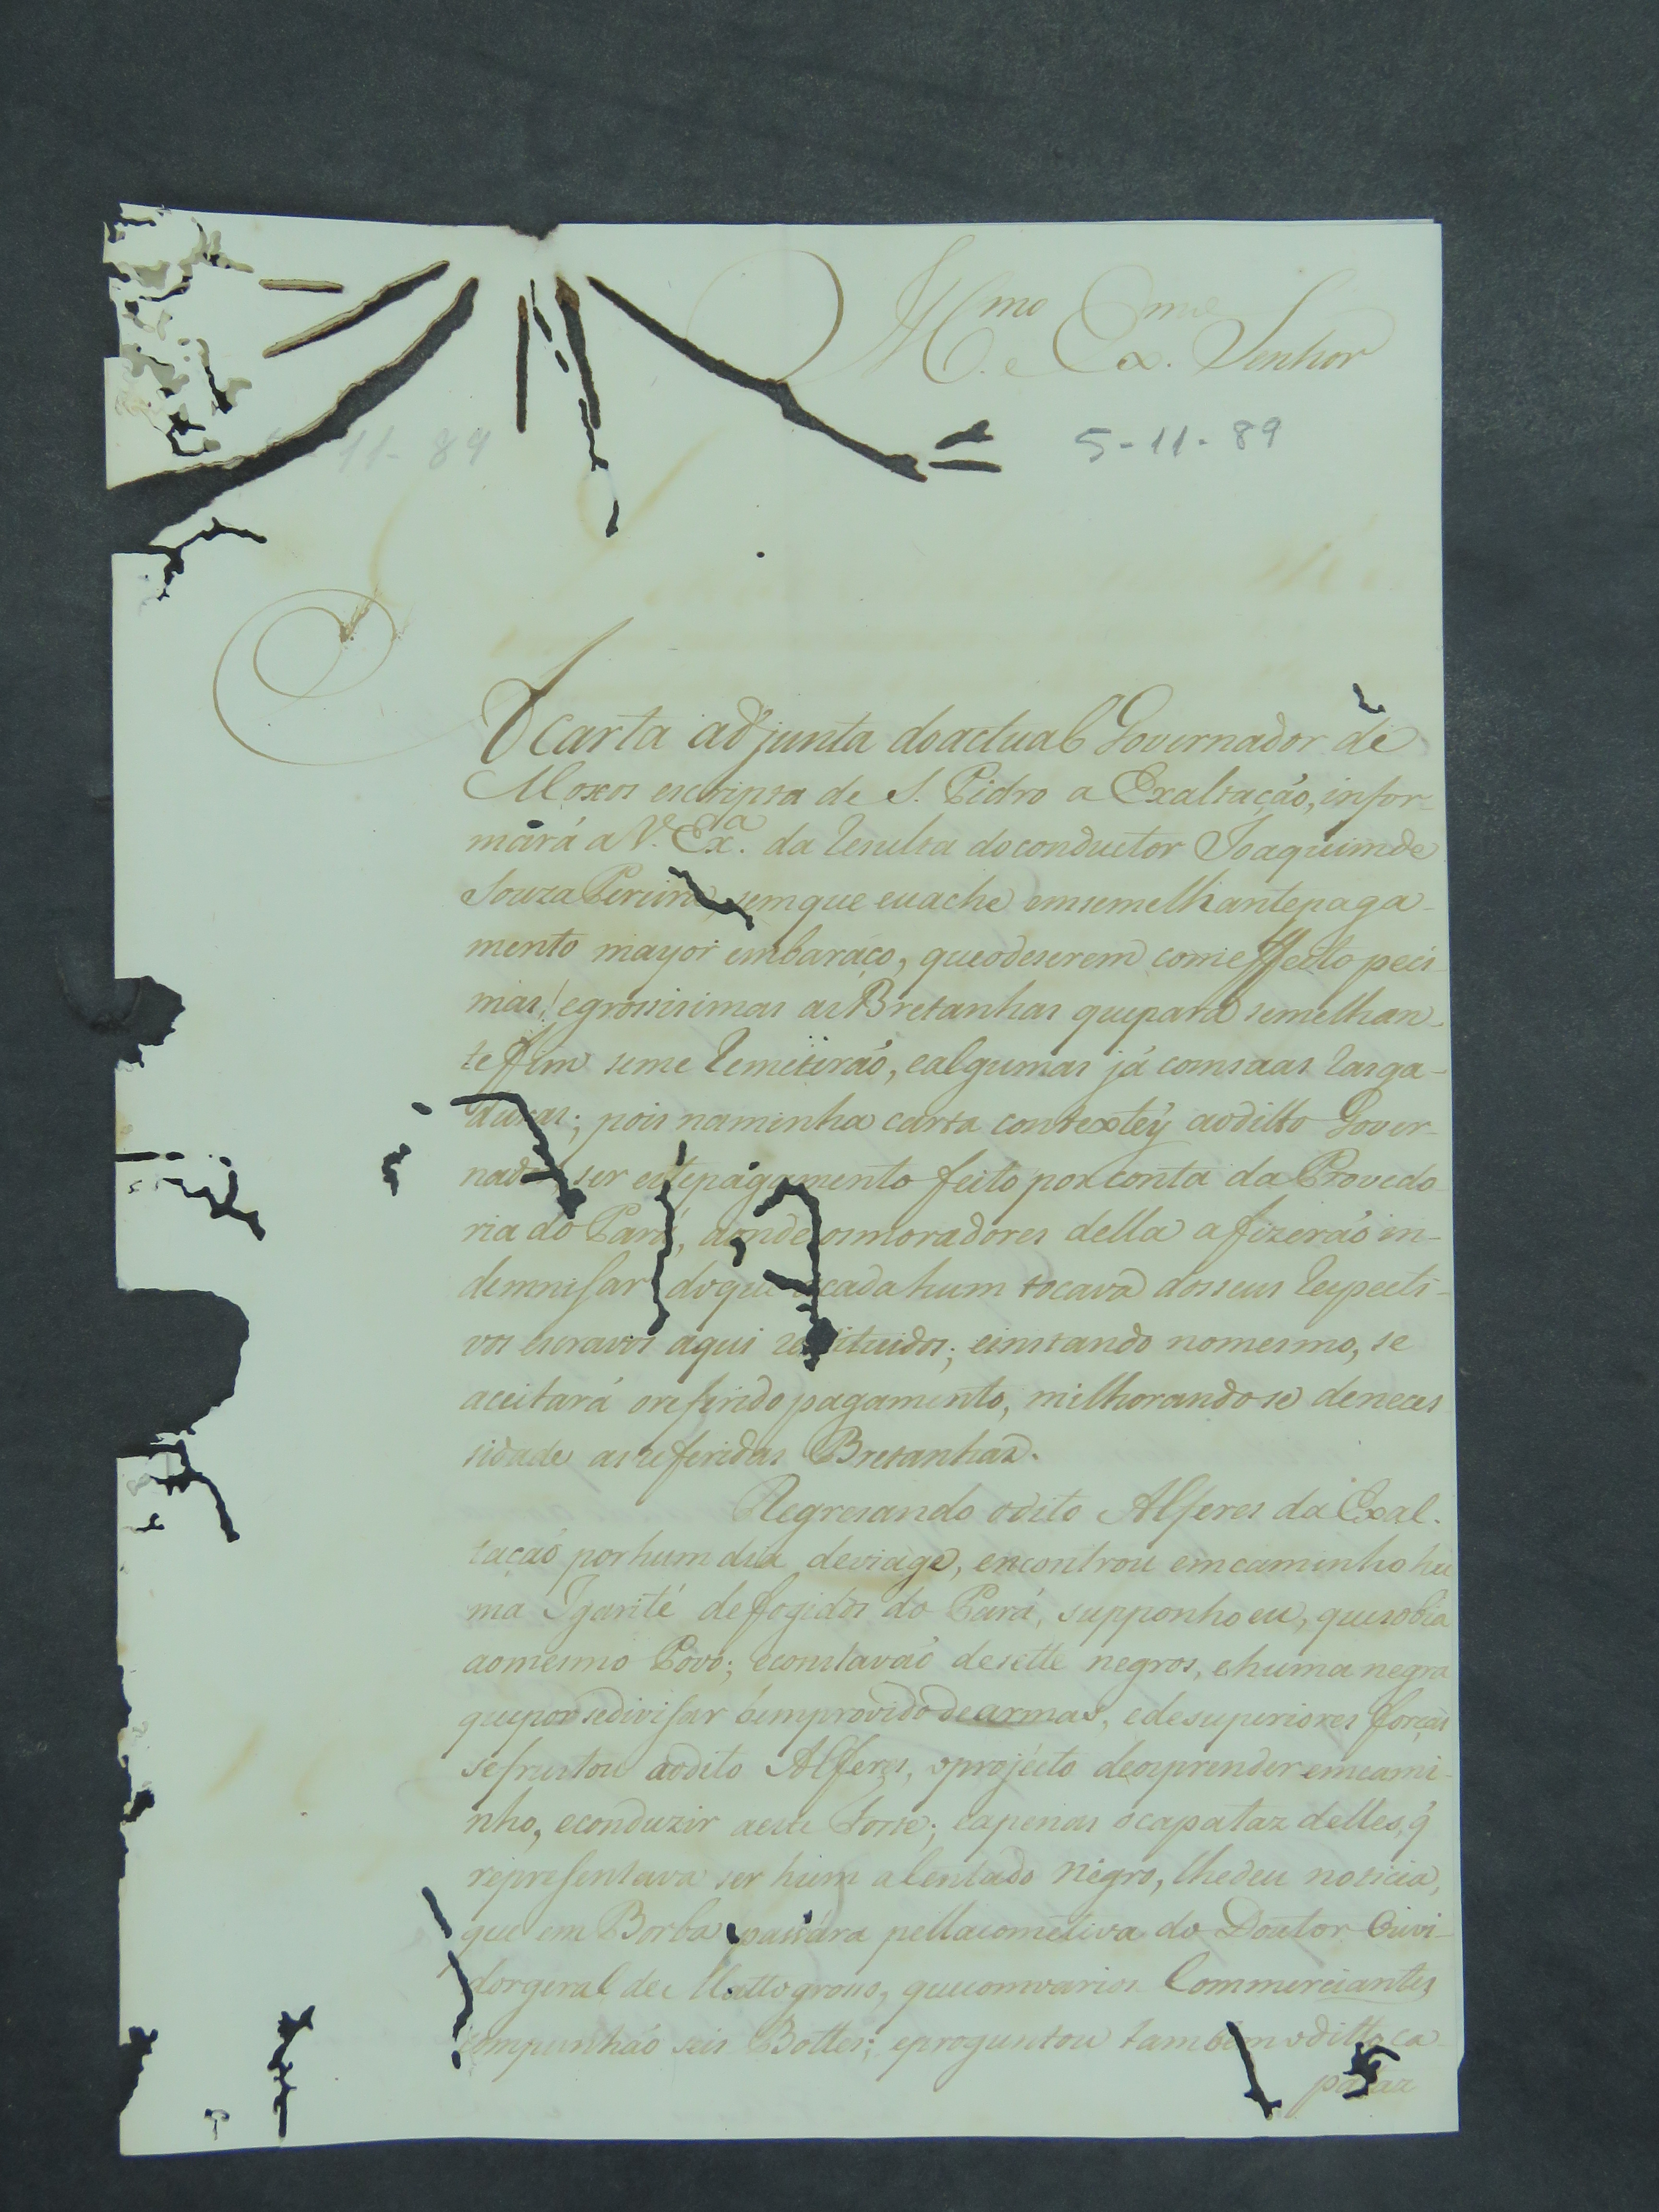 Ill.mo e Ex.mo Senhor
5-11-89
11-89
A carta adjunta do actual Governador de
Moxos escripta de S. Pedro a Exaltação, infor-
mará a V. Ex.a da Resulta do conductor Joaquim de
Souza Pereira, sem que eu ache em semelhante paga-
mento mayor embaraço, que o de serem com effeito pecí-
mas, e grossisimas as Bretanhas que para semelhan-
te fim se me Remetirão, e algumas já com suas Rasga-
duras; pois na minha carta contextey ao ditto Gover-
nador ser este pagamento feito por conta da Provedo-
ria do Pará, donde os moradores della a fizerão in-
demnisar do que a cada hum tocava dos seus Respecti-
vos escravos aqui restituidos; e instando no mesmo, se
aceitará o referido pagamento, milhorando-se de neces-
sidade as referidas Bretanhas.
Regresando o dito Alferes da Exal-
tação por hum dia de viage, encontrou em caminho hu
ma Igarité de fogidos do Pará, supponho eu, que sobia
ao mesmo Povo; e constavão de sette negros, e huma negra
que por se divisar bem provido de armas, e de superiores forças
se frustou ao dito Alferes, o projecto de os prender em cami-
nho, e conduzir a este Forte; e apenas o capataz delles, q̃
representava ser hum alentado negro, lhe deu noticia,
que em Borba passára pella cometiva do Doutor Ouvi-
dor geral de Mattogroso, que com varios Commerciantes
compunhão seis Bottes; e proguntou tambem o ditto ca
pataz